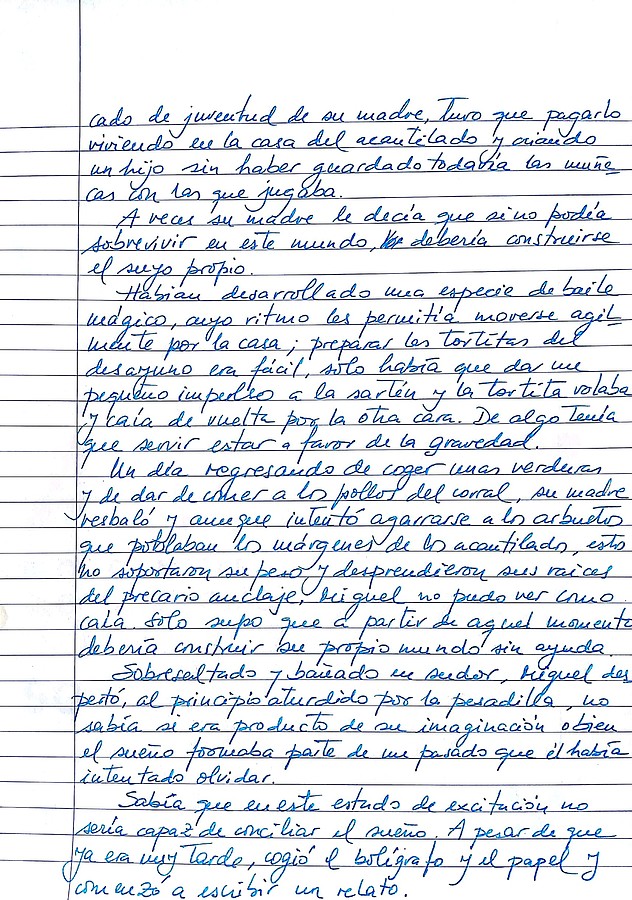 cado de juventud de su madre, tuvo que pagarlo
viviendo en la casa del acantilado y criando
un hijo sin haber guardado todavía las muñe
cas con las que jugaba.
A veces su madre le decía que si no podía
sobrevivir en este mundo, debería construirse
el suyo propio.
Habían desarrollado una especie de baile
mágico, cuyo ritmo les permitía moverse agil-
mente por la casa; preparar las tortitas del
desayuno era fácil, solo había que dar un
pequeño impulso a la sartén y la tortita volaba
y caía de vuelta por la otra cara. De algo tenía
que servir estar a favor de la gravedad.
Un día regresando de coger unas verduras
y de dar de comer a los pollos del corral, su madre
resbaló y aunque intentó agarrarse a los arbustos
que poblaban los márgenes de los acantilado, esto
no soportaron su peso y desprendieron sus raices
del precario anclaje, Miguel no pudo ver como
caía. Solo supo que a partir de aquel momento
debería construir su propio mundo sin ayuda.
Sobresaltado y bañado en sudor, Miguel des
pertó, al principio aturdido por la pesadilla, no
sabía si era producto de su imaginación o bien
el sueño formaba parte de un pasado que él había
intentado olvidar.
Sabía que en este estado de excitución no
sería capaz de conciliar el sueño. A pesar de que
ya era muy tarde, cogió el bolígrafo y el papel y
comenzó a escribir un relato.